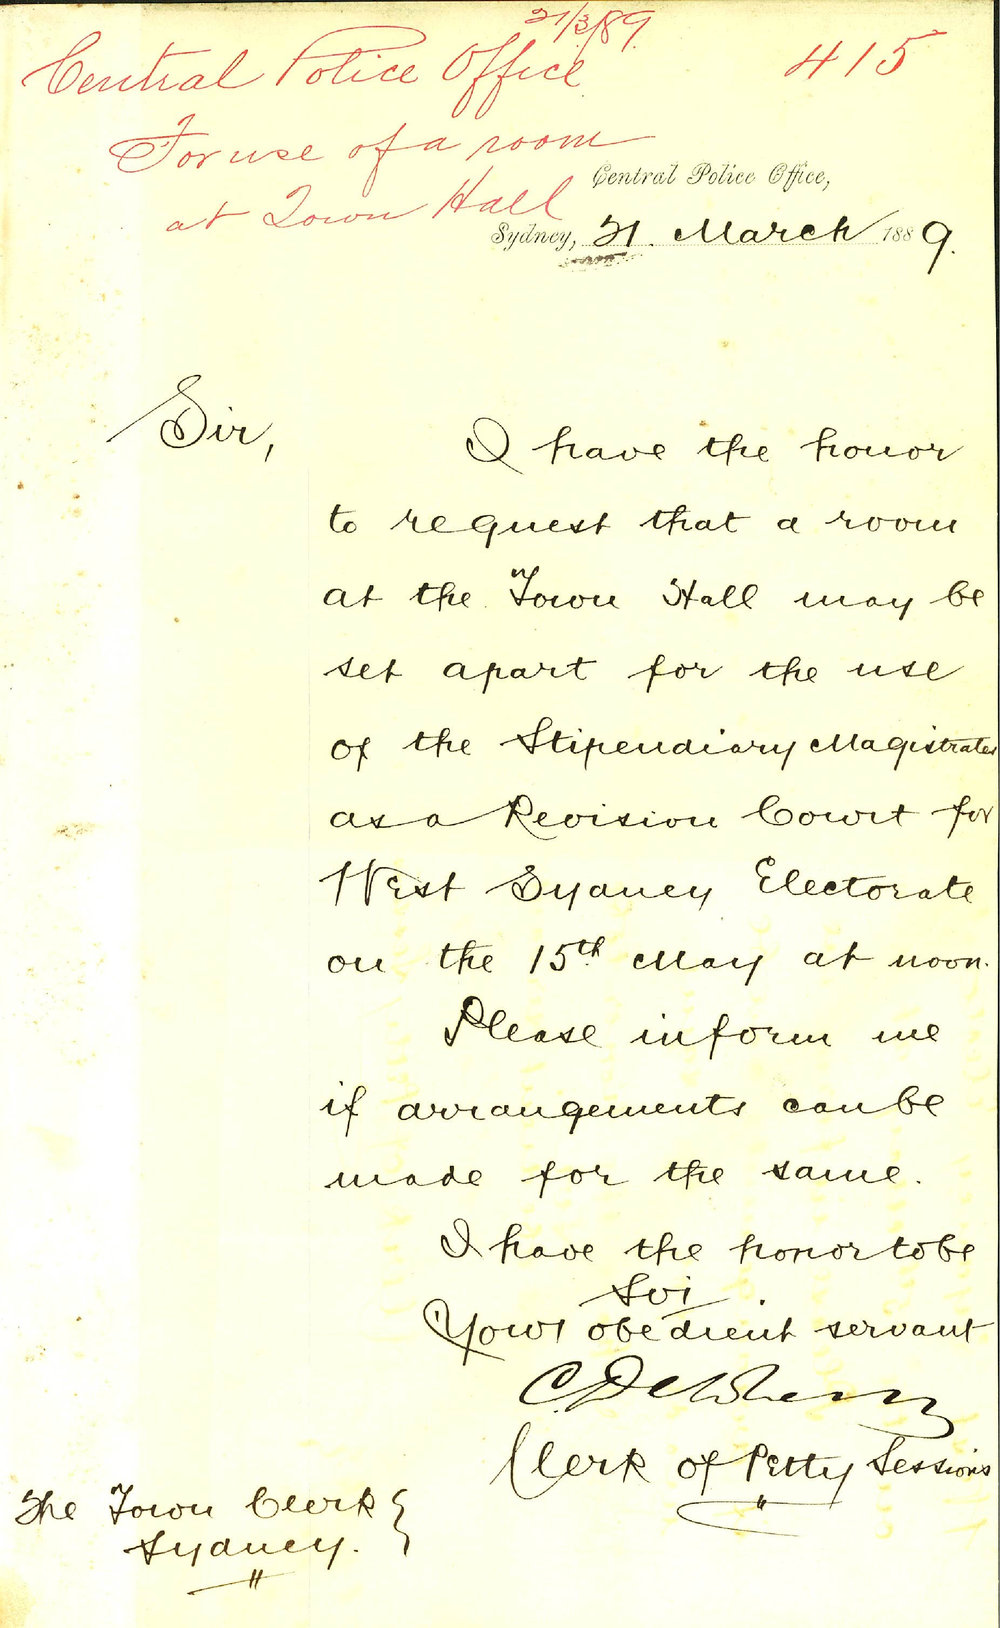 21/3/89
Central Police Office 415
For use of a room
at Town Hall
Central Police Office,
Sydney, 21. March 1889.
Sir,
I have the honor
to request that a room
at the Town Hall may be
set apart for the use
of the Stipendiary Magistrates
as a Revision Court for
West Sydney Electorate
on the 15th May at noon.
Please inform me
if arrangements can be
made for the same.
I have the honor to be
Sir
Your obedient servant
C.
Clerk of Petty Sessions
The Town Clerk
Sydney.